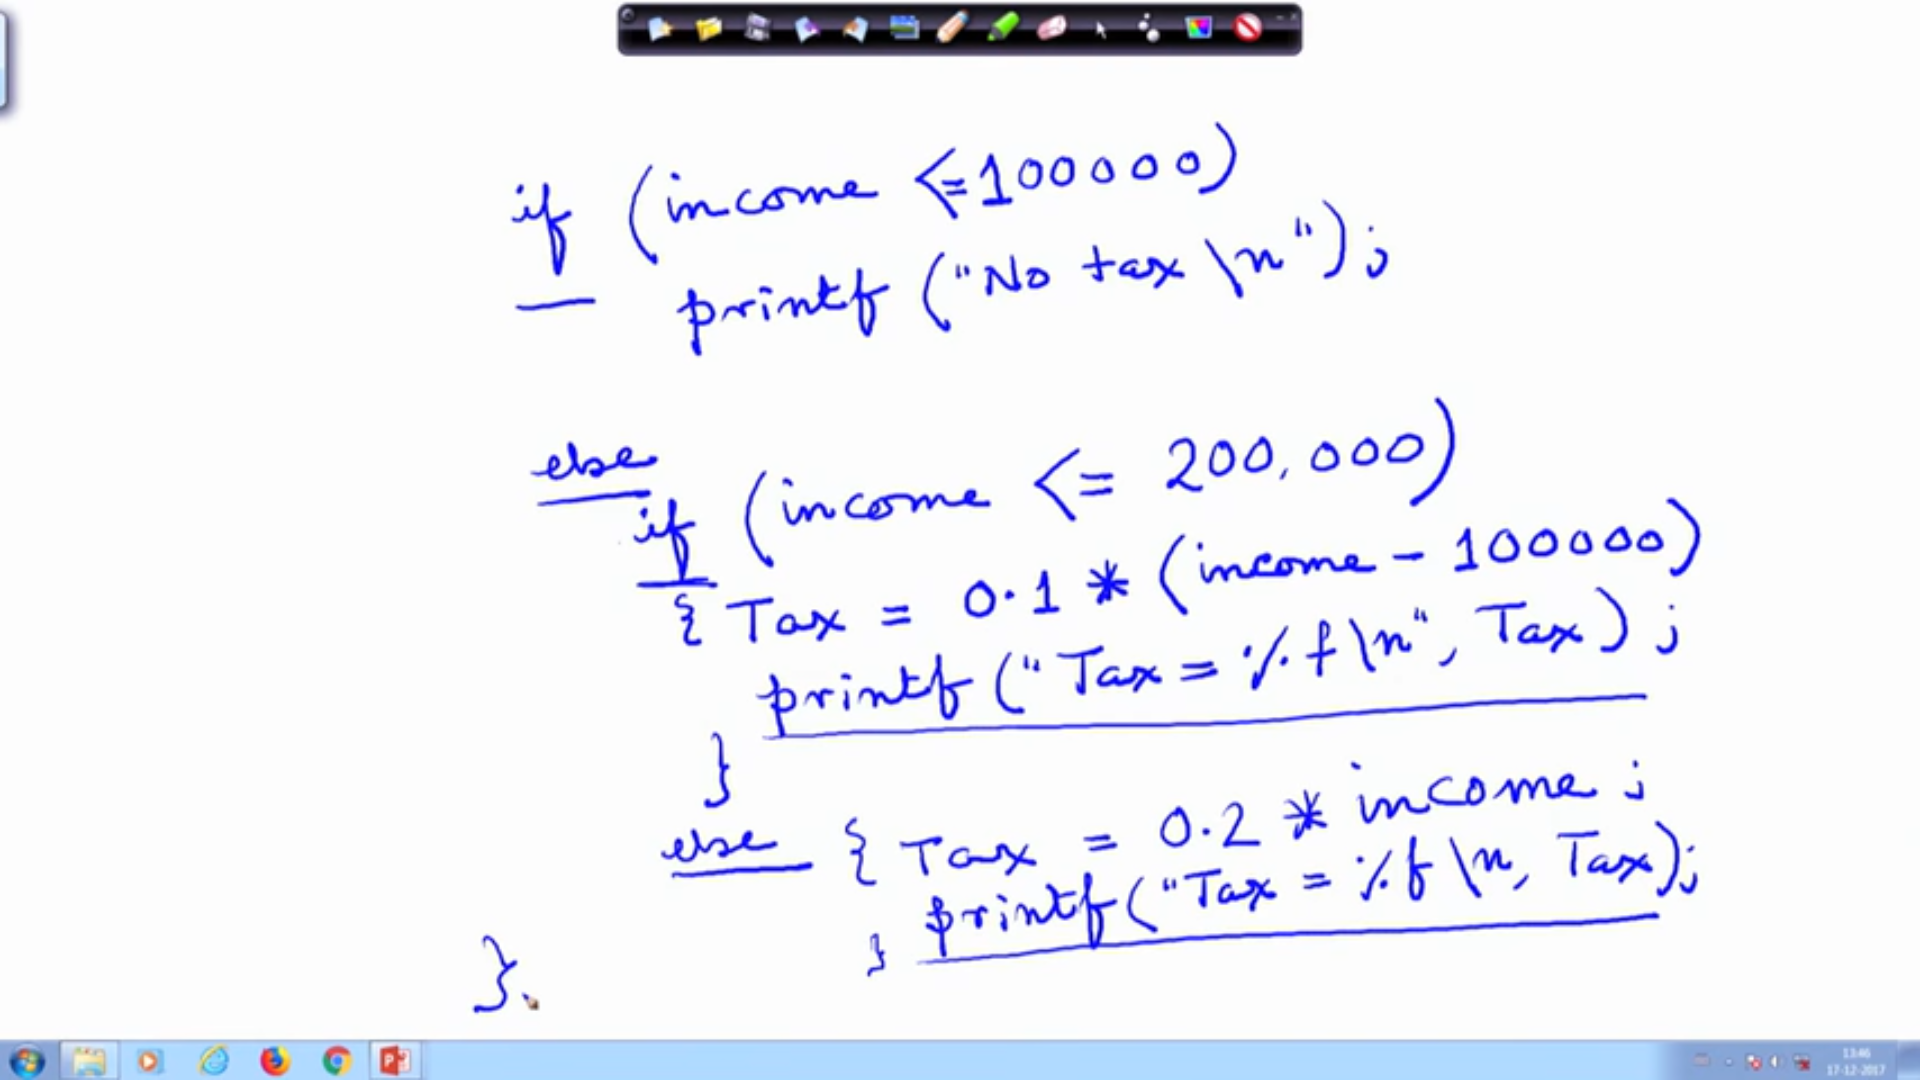 if (income <=100000)
printf ("No tax \n");
else
if (income <= 200,000)
{ Tax = 0.1 * (income - 100000)
printf ("Tax = %f\n", Tax) ;
}
else { Tax = 0.2 * income ;
printf("Tax = %f \n, Tax);
}
}.
13:46
17-12-2017